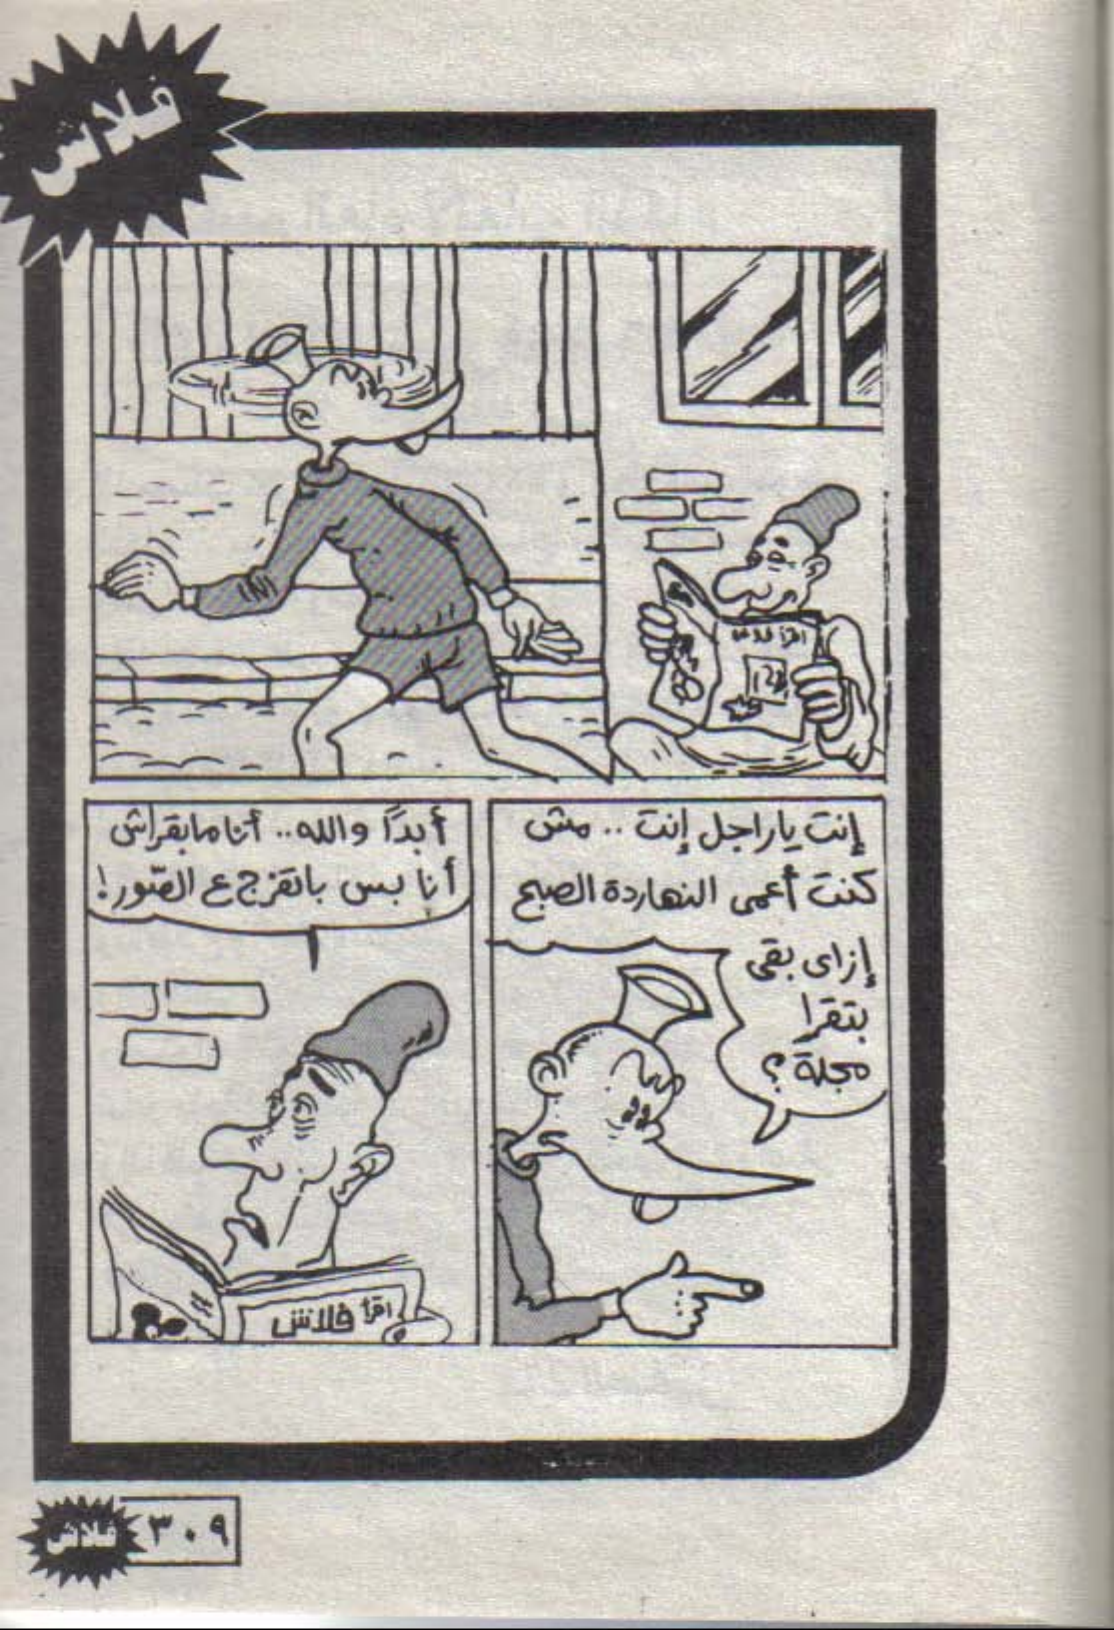 فلاش
اقرأ فلاش
إنت ياراجل إنت .. مش
كنت أعمى النهاردة الصبح
إزاى بقى
بتقرا
مجلة ؟
أبداً والله .. أنا مابقراش
أنا بس باتفرج ع الصّور !
اقرأ فلاش
٣٠٩
فلاش